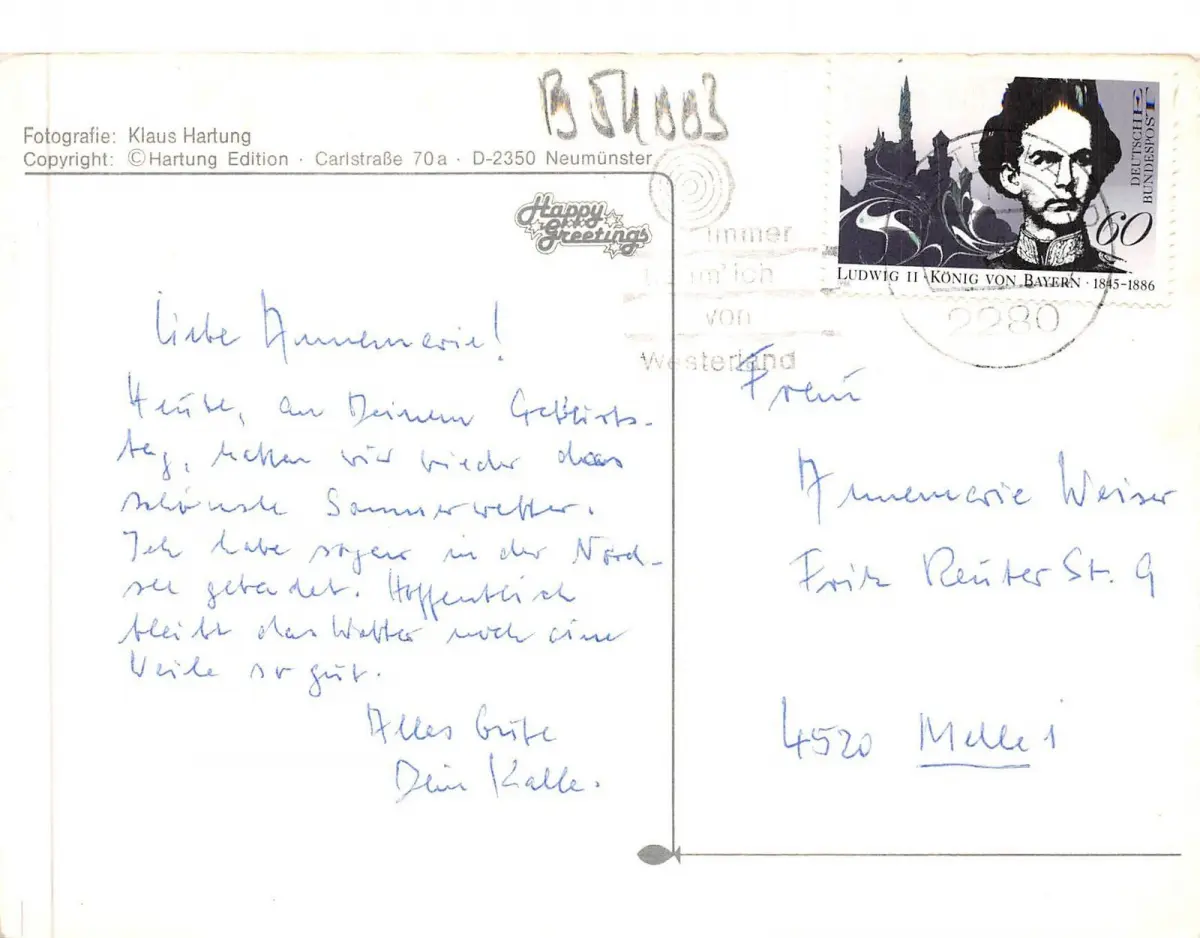 B54003
Fotografie: Klaus Hartung
Copyright: ©Hartung Edition · Carlstraße 70a · D-2350 Neumünster
Happy
Greetings
DEUTSCHE
BUNDESPOST
60
LUDWIG II · KÖNIG VON BAYERN · 1845–1886
immer
von
Westerland
2280
Liebe Annemarie!
Heute, an Deinem Geburts-
tag, hatten wir wieder das
schönste Sommerwetter.
Ich habe sogar in der Nord-
see gebadet. Hoffentlich
bleibt das Wetter noch eine
Weile so gut.
Alles Gute
Dein Kalle.
Frau
Annemarie Weiser
Fritz Reuter St. 9
4520 Melle 1